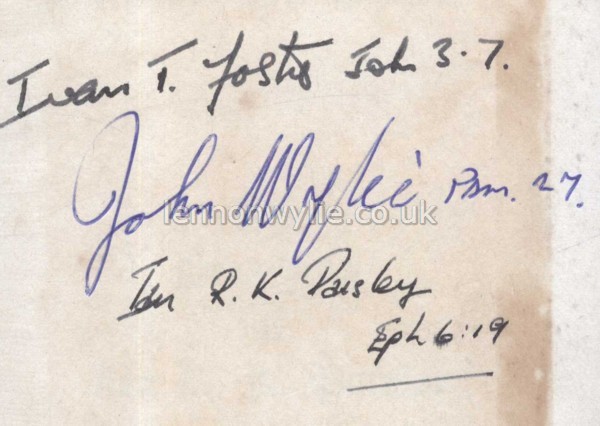 Ivan T. Foster John 3.7.
John Wylie Psm. 27.
lennonwylie.co.uk
Ian R. K. Paisley
Eph 6:19